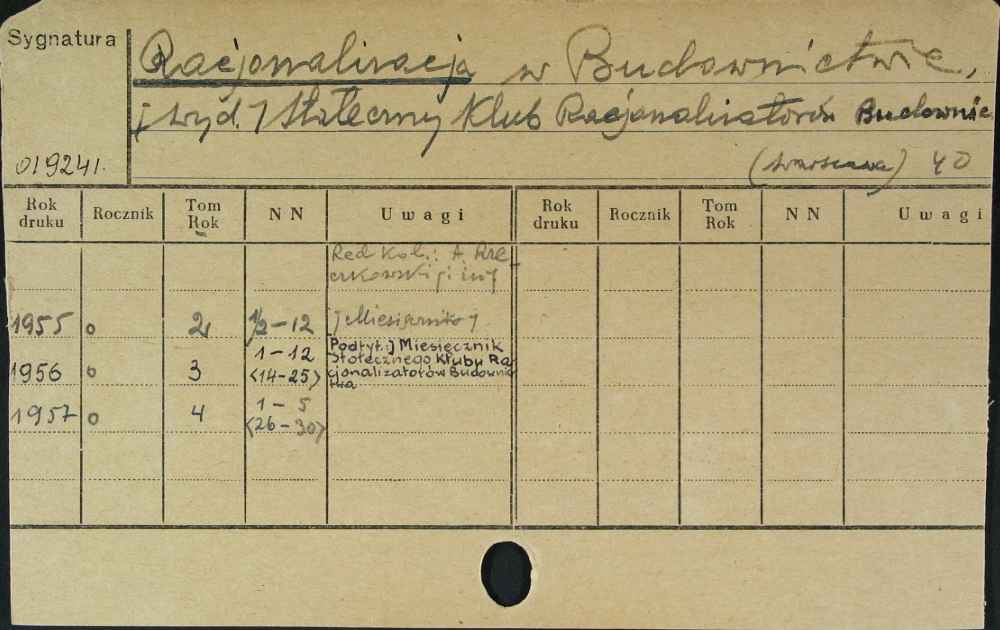 Sygnatura
Racjonalizacja w Budownictwie,
j wyd. 7 Stołeczny Klub Racjonalizatorów Budownic
019241.
(Warszawa) 40
Rok druku Rocznik Tom Rok NN Uwagi Rok druku Rocznik Tom Rok NN Uwagi
Red Kol.: A.
i inj
1955 o 2 1/2-12 j Miesięcznik 7
1956 o 3 1-12 <14-25> Podtyt. j Miesięcznik
Stołecznego Klubu Ra
cjonalizatorów Budownic
twa
1957 o 4 1-5 <26-30>